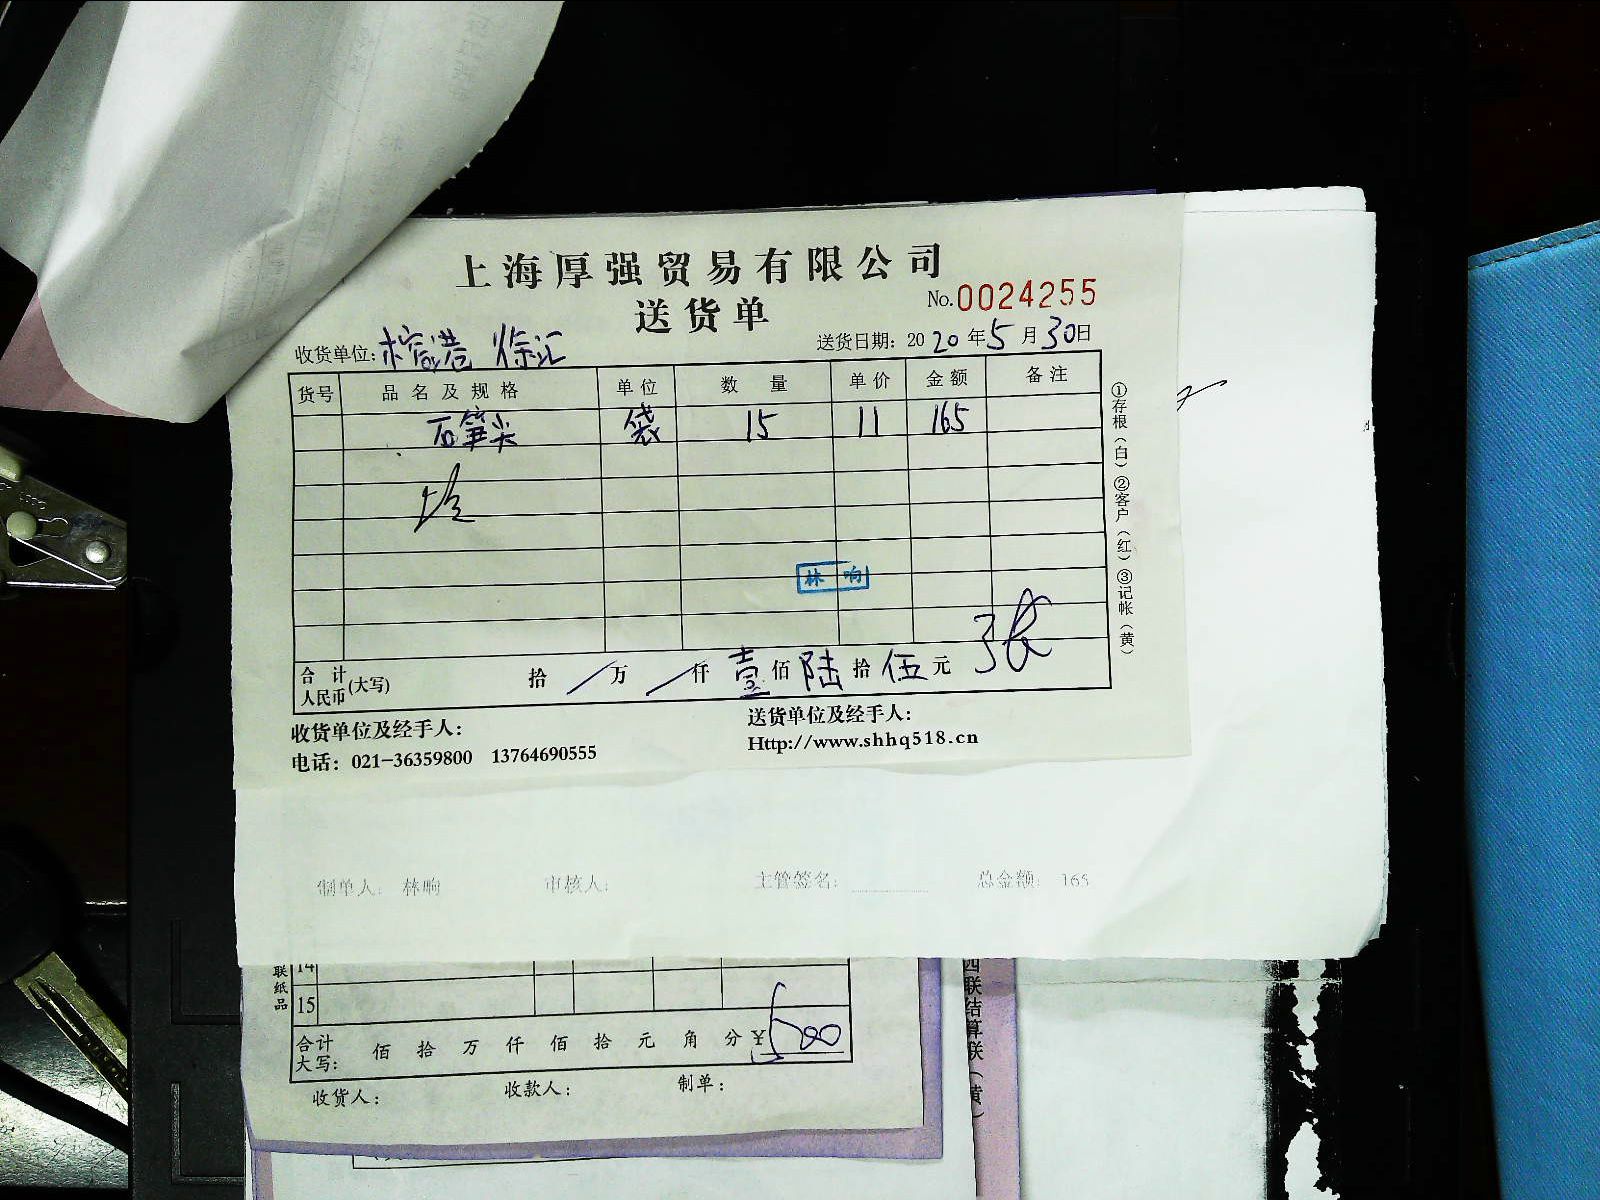 上海厚强贸易有限公司
送货单
No.0024255
收货单位: 榕港 徐汇
送货日期: 2020年5月30日
货号 品名及规格 单位 数量 单价 金额 备注
石笋尖 袋 15 11 165
林响
合计人民币(大写) 拾/万/仟壹佰陆拾伍元 张
①存根(白)②客户(红)③记帐(黄)
收货单位及经手人:
送货单位及经手人:
电话: 021-36359800 13764690555
Http://www.shhq518.cn
制单人: 林响 审核人: 主管签名: 总金额: 165
联纸品
14
15
合计大写: 佰 拾 万 仟 佰 拾 元 角 分 ¥
收货人: 收款人: 制单:
四联结算联(黄)